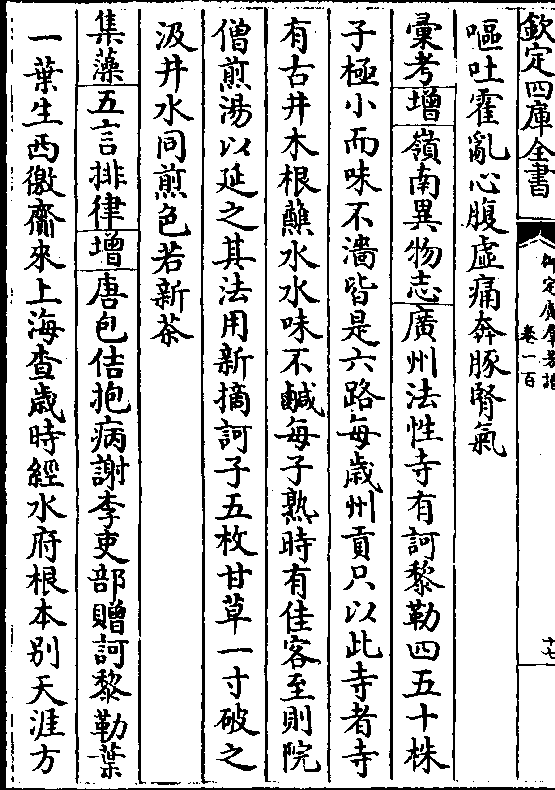 欽定四庫全書
御定廣羣芳譜
卷一百
嘔吐霍亂心腹虛痛奔豚腎氣
彙考增嶺南異物志廣州法性寺有訶黎勒四五十株
子極小而味不濇皆是六路每歳州貢只以此寺者寺
有古井木根蘸水水味不鹹每子熟時有佳客至則院
僧煎湯以延之其法用新摘訶子五枚甘草一寸破之
汲井水同煎色若新茶
集藻五言排律增唐包佶抱病謝李吏部贈訶黎勒葉
一葉生西徼齎來上海查歳時經水府根本别天涯方